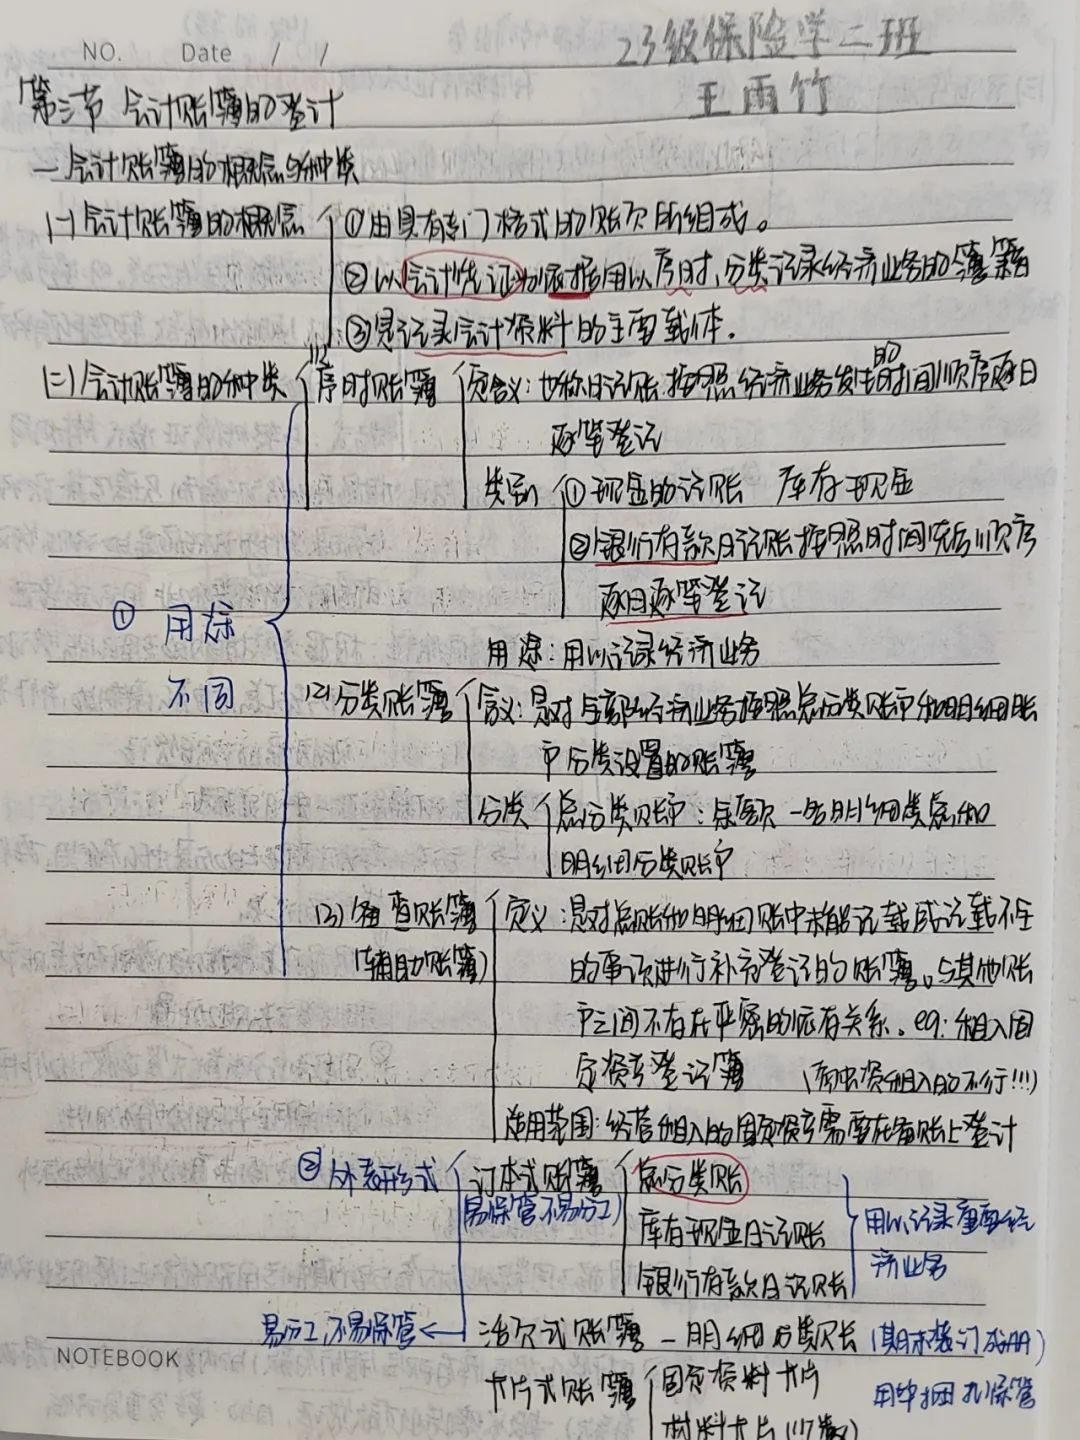 NO. Date / /
23级保险学二班
王雨竹
第三节 会计账簿的登计
一会计账簿的概念与种类
(一)会计账簿的概念 ①由具有专门格式的账页所组成。
②以会计凭证为依据用以序时,分类记录经济业务的簿籍
③是记录会计资料的主要载体.
(二)会计账簿的种类 (1)序时账簿 含义:也称日记账.按照经济业务发生的时间顺序逐日
逐笔登记
类别 ①现金日记账 库存现金
②银行存款日记账按照时间先后顺序
逐日逐笔登记
① 用途
不同
用途:用以记录经济业务
(2)分类账簿 含义:是对全部经济业务按照总分类账户和明细账
户分类设置的账簿
分类 总分类账户:
明细分类账户
(3)备查账簿 定义:是对总账和明细账中未能记载或记载不全
(辅助账簿) 的事项进行补充登记的账簿。与其他账
户之间不存在严密的依存关系。eg:租入固
定资产登记簿 (融资租入的不行!!!)
适用范围:经营租入的固定资产需要在备账上登计
② 外表形式 订本式账簿 总分类账
易保管不易分工) 库存现金日记账 用以记录重要经
济业务
银行存款日记账
易分工,不易保管← 活页式账簿 — 明细分类账 (期末装订成册)
NOTEBOOK
卡片式账簿 固定资料卡片 用中捆扎保管
材料卡片